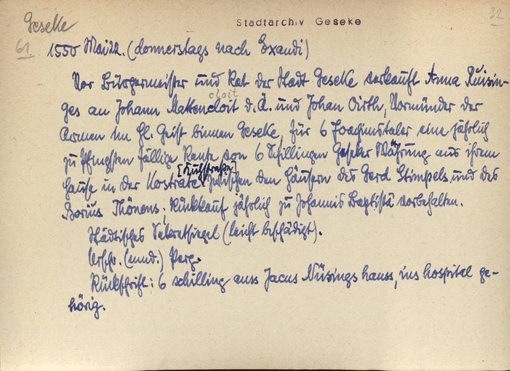 Geseke
Stadtarchiv Geseke
32
61 1550 Mai 22. (donnerstags nach Exaudi)
Vor Bürgermeister und Rat der Stadt Geseke verkauft Anna Kuisin-
ges an Johann Mattencloit d. Ä. und Johan Cirth, Vormünder der
Armen im Hl. Geist binnen Geseke, für 6 Joachimstaler eine jährlich
zu Pfingsten fällige Rente von 6 Schillingen Geseker Währung aus ihrem
Hause in der Kostrate [Kuhstraße] zwischen den Häusern des Gerd Stimpels und des
Borius Thönens; Rückkauf jährlich zu Johannis Baptistä vorbehalten.
Städtisches Sekretsiegel (leicht beschädigt).
Urschr. (mnd.) Perg.
Rückschrift: 6 schilling auss Jacus Nüsings hauss, ins hospital ge-
hörig.